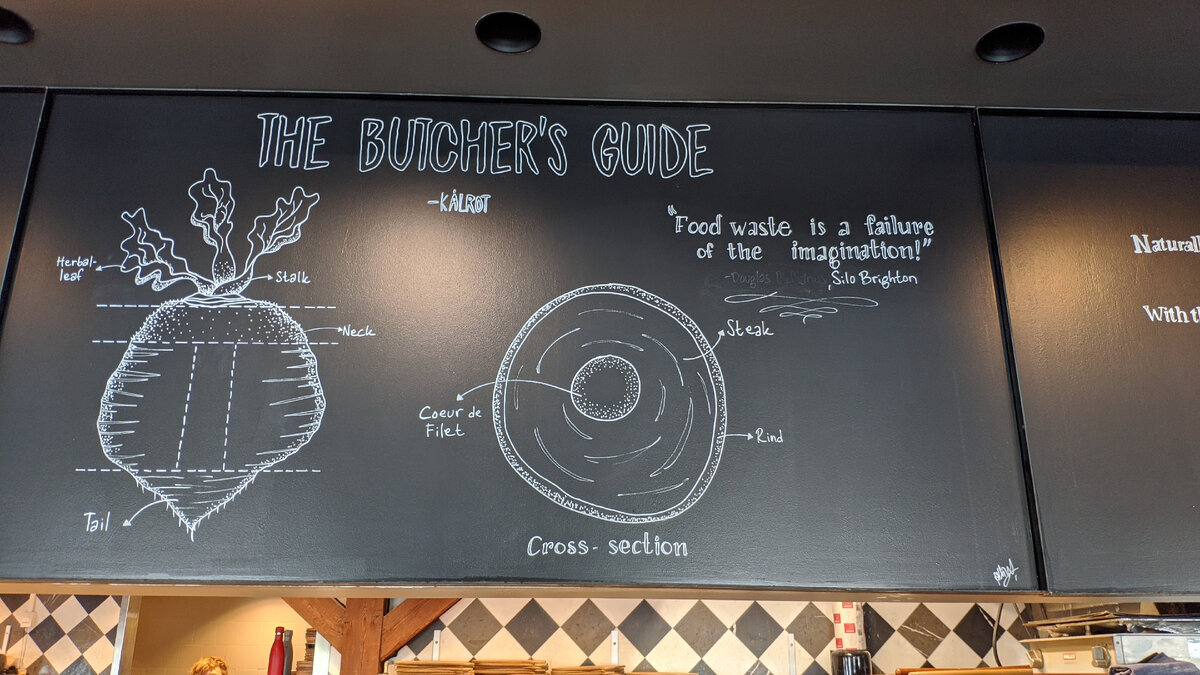 THE BUTCHER'S GUIDE
-KÅLROT
"Food waste is a failure
of the imagination!"
-Douglas
, Silo Brighton
Herbal-
leaf
Stalk
Neck
Tail
Steak
Coeur de
Filet
Rind
Cross-section
Naturall
With th